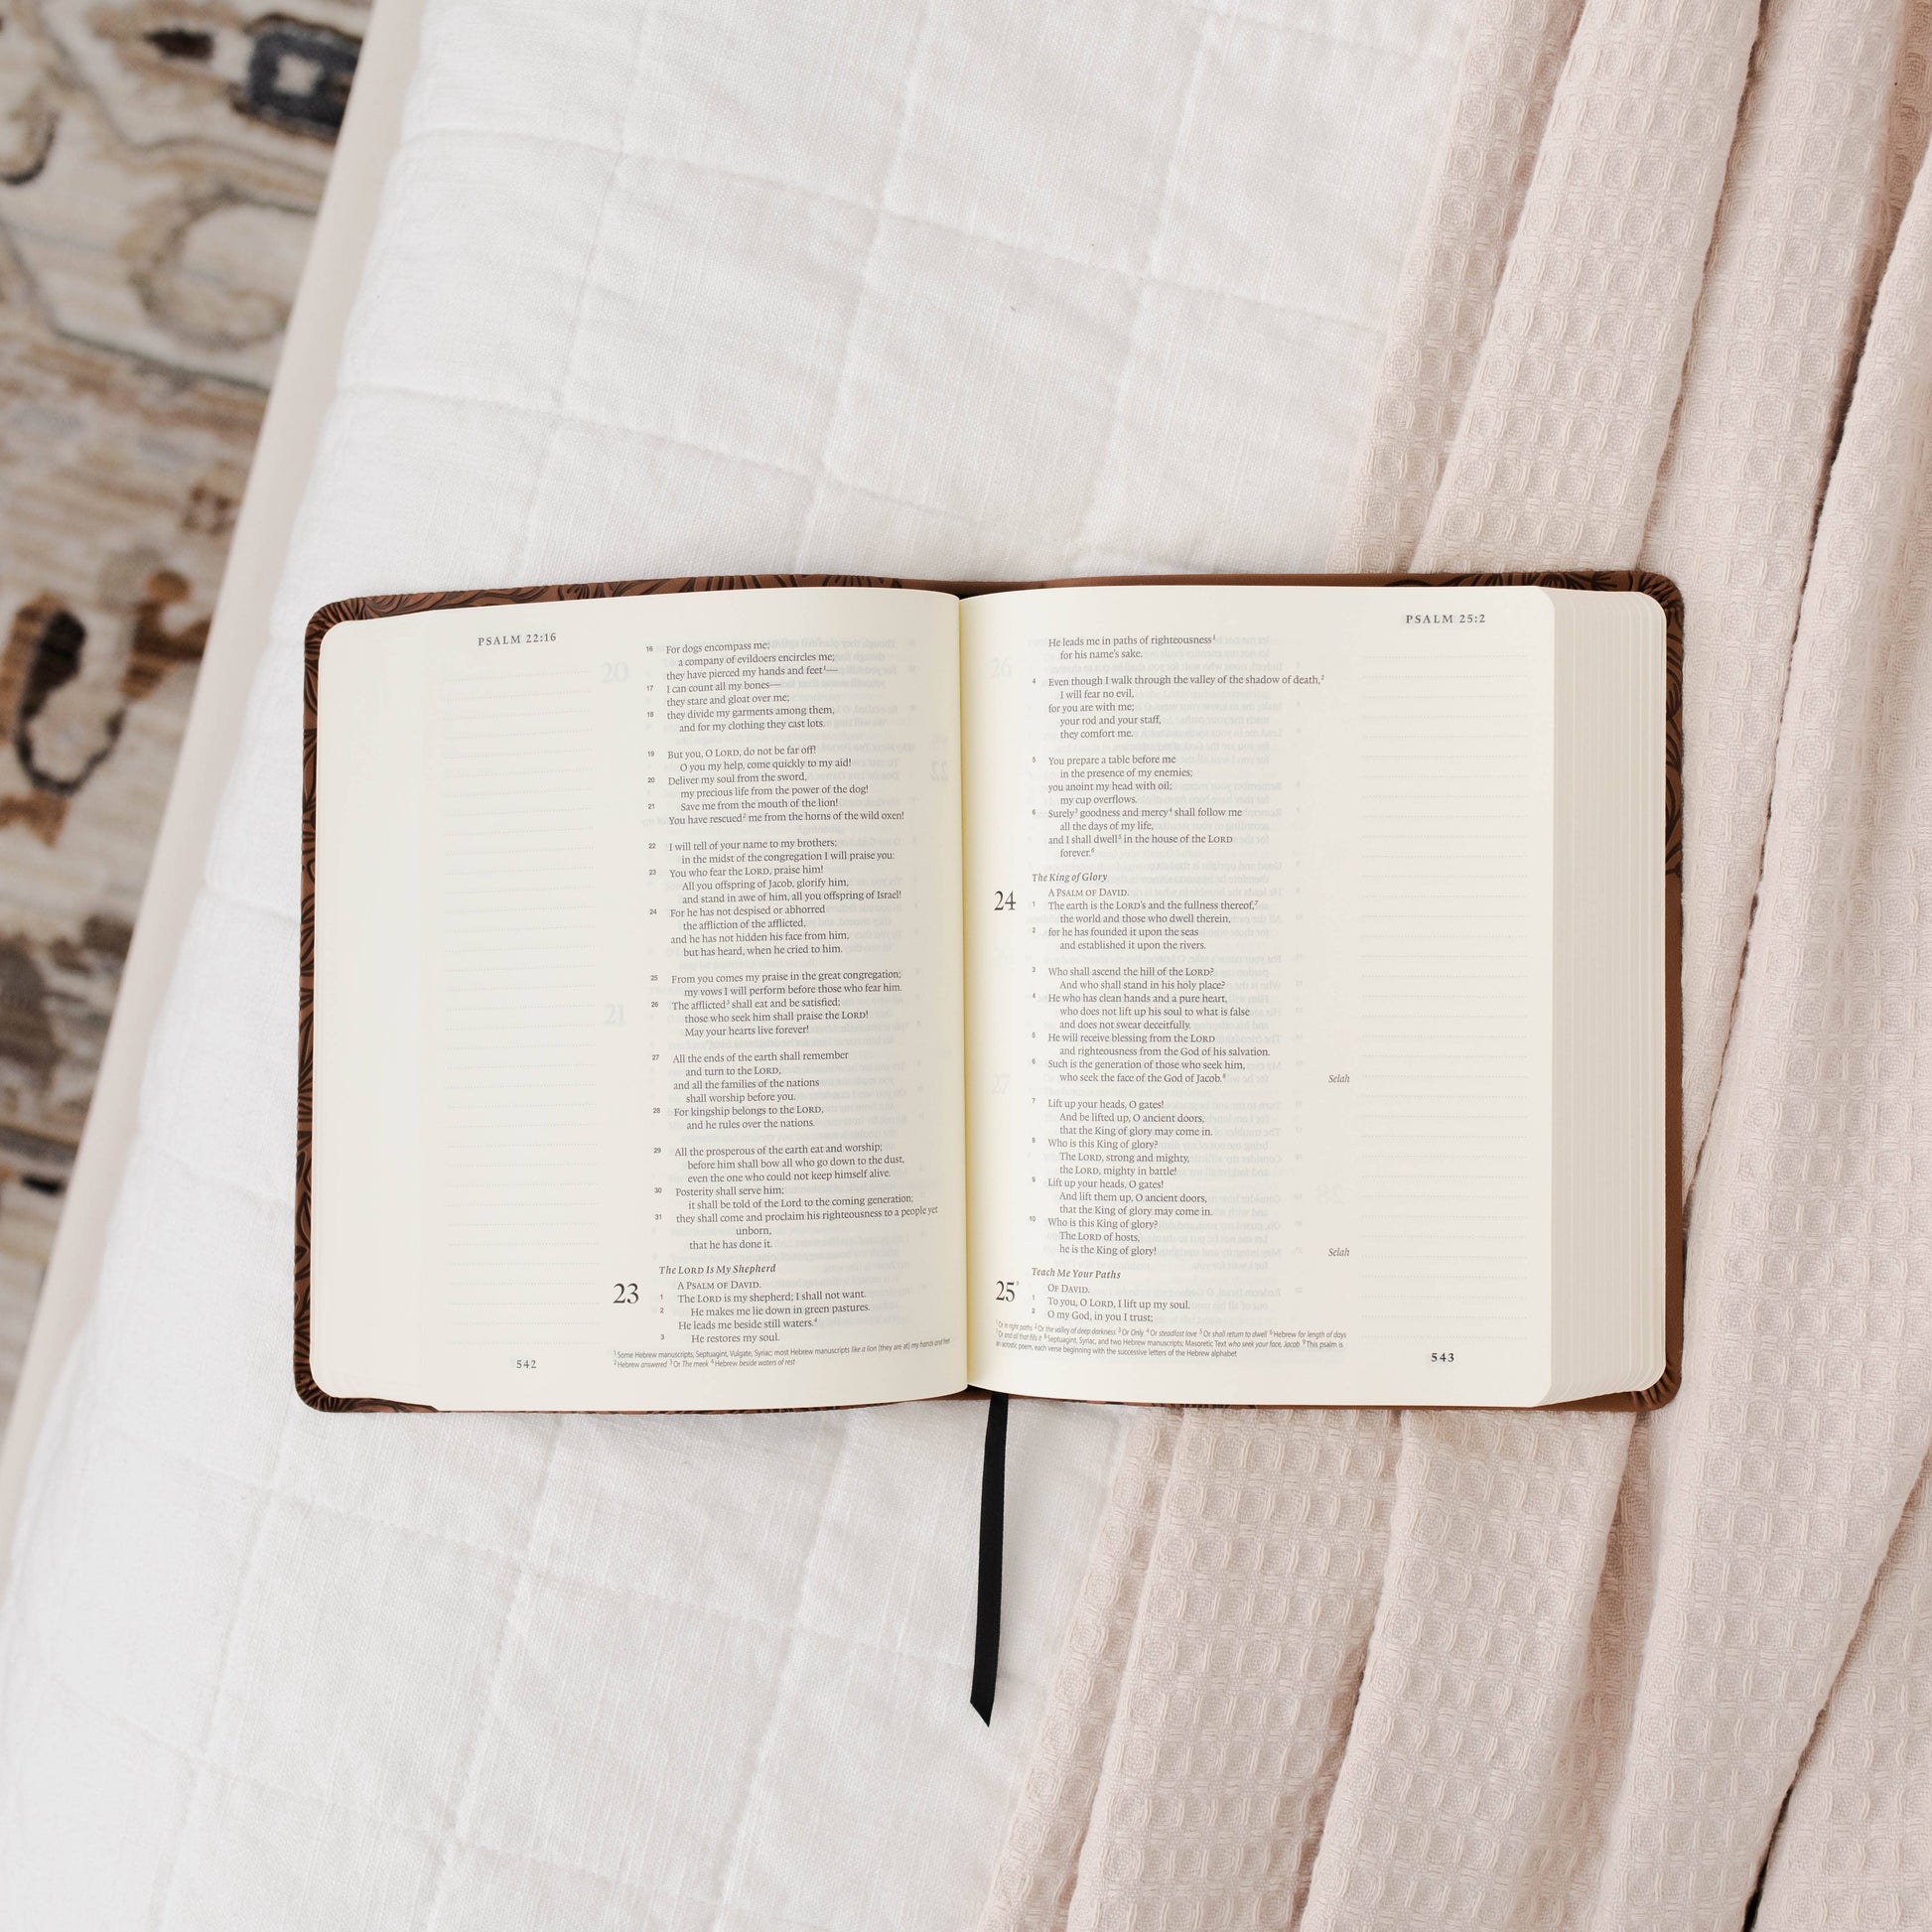 PSALM 22:16
16 For dogs encompass me;
a company of evildoers encircles me;
they have pierced my hands and feet¹—
17 I can count all my bones—
they stare and gloat over me;
18 they divide my garments among them,
and for my clothing they cast lots.
19 But you, O LORD, do not be far off!
O you my help, come quickly to my aid!
20 Deliver my soul from the sword,
my precious life from the power of the dog!
21 Save me from the mouth of the lion!
You have rescued² me from the horns of the wild oxen!
22 I will tell of your name to my brothers;
in the midst of the congregation I will praise you:
23 You who fear the LORD, praise him!
All you offspring of Jacob, glorify him,
and stand in awe of him, all you offspring of Israel!
24 For he has not despised or abhorred
the affliction of the afflicted,
and he has not hidden his face from him,
but has heard, when he cried to him.
25 From you comes my praise in the great congregation;
my vows I will perform before those who fear him.
26 The afflicted³ shall eat and be satisfied;
those who seek him shall praise the LORD!
May your hearts live forever!
27 All the ends of the earth shall remember
and turn to the LORD,
and all the families of the nations
shall worship before you.
28 For kingship belongs to the LORD,
and he rules over the nations.
29 All the prosperous of the earth eat and worship;
before him shall bow all who go down to the dust,
even the one who could not keep himself alive.
30 Posterity shall serve him;
it shall be told of the Lord to the coming generation;
31 they shall come and proclaim his righteousness to a people yet
unborn,
that he has done it.
The LORD Is My Shepherd
23 A PSALM OF DAVID.
1 The LORD is my shepherd; I shall not want.
2 He makes me lie down in green pastures.
He leads me beside still waters.⁴
3 He restores my soul.
¹ Some Hebrew manuscripts, Septuagint, Vulgate, Syriac; most Hebrew manuscripts like a lion [they are at] my hands and feet
² Hebrew answered ³ Or The meek ⁴ Hebrew beside waters of rest
542
PSALM 25:2
He leads me in paths of righteousness¹
for his name's sake.
4 Even though I walk through the valley of the shadow of death,²
I will fear no evil,
for you are with me;
your rod and your staff,
they comfort me.
5 You prepare a table before me
in the presence of my enemies;
you anoint my head with oil;
my cup overflows.
6 Surely³ goodness and mercy⁴ shall follow me
all the days of my life,
and I shall dwell⁵ in the house of the LORD
forever.⁶
The King of Glory
24 A PSALM OF DAVID.
1 The earth is the LORD's and the fullness thereof,⁷
the world and those who dwell therein,
2 for he has founded it upon the seas
and established it upon the rivers.
3 Who shall ascend the hill of the LORD?
And who shall stand in his holy place?
4 He who has clean hands and a pure heart,
who does not lift up his soul to what is false
and does not swear deceitfully.
5 He will receive blessing from the LORD
and righteousness from the God of his salvation.
6 Such is the generation of those who seek him,
who seek the face of the God of Jacob.⁸ Selah
7 Lift up your heads, O gates!
And be lifted up, O ancient doors,
that the King of glory may come in.
8 Who is this King of glory?
The LORD, strong and mighty,
the LORD, mighty in battle!
9 Lift up your heads, O gates!
And lift them up, O ancient doors,
that the King of glory may come in.
10 Who is this King of glory?
The LORD of hosts,
he is the King of glory! Selah
Teach Me Your Paths
25⁹ OF DAVID.
1 To you, O LORD, I lift up my soul.
2 O my God, in you I trust;
¹ Or in right paths ² Or the valley of deep darkness ³ Or Only ⁴ Or steadfast love ⁵ Or shall return to dwell ⁶ Hebrew for length of days
⁷ Or and all that fills it ⁸ Septuagint, Syriac, and two Hebrew manuscripts; Masoretic Text who seek your face, Jacob ⁹ This psalm is
an acrostic poem, each verse beginning with the successive letters of the Hebrew alphabet
543